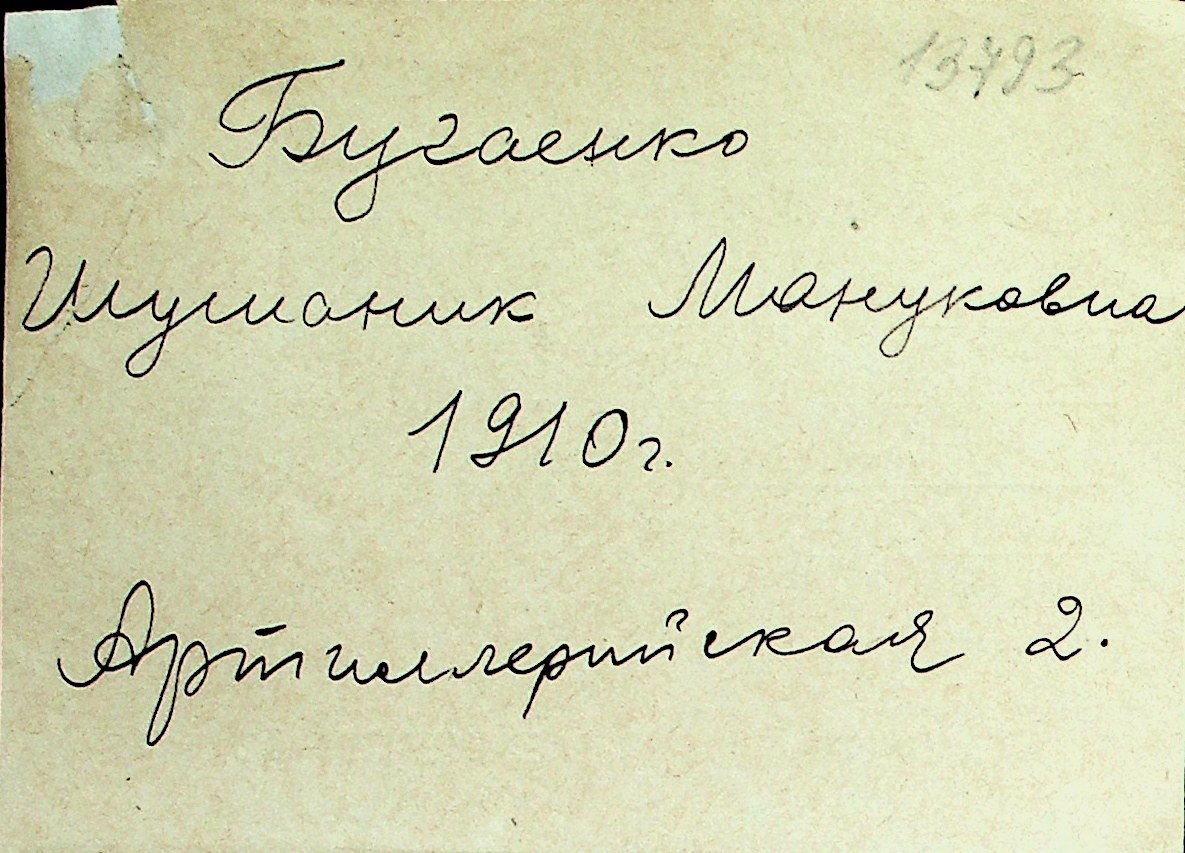 13493
Бугаенко
Шушаник Мануковна
1910г.
Артиллерийская 2.